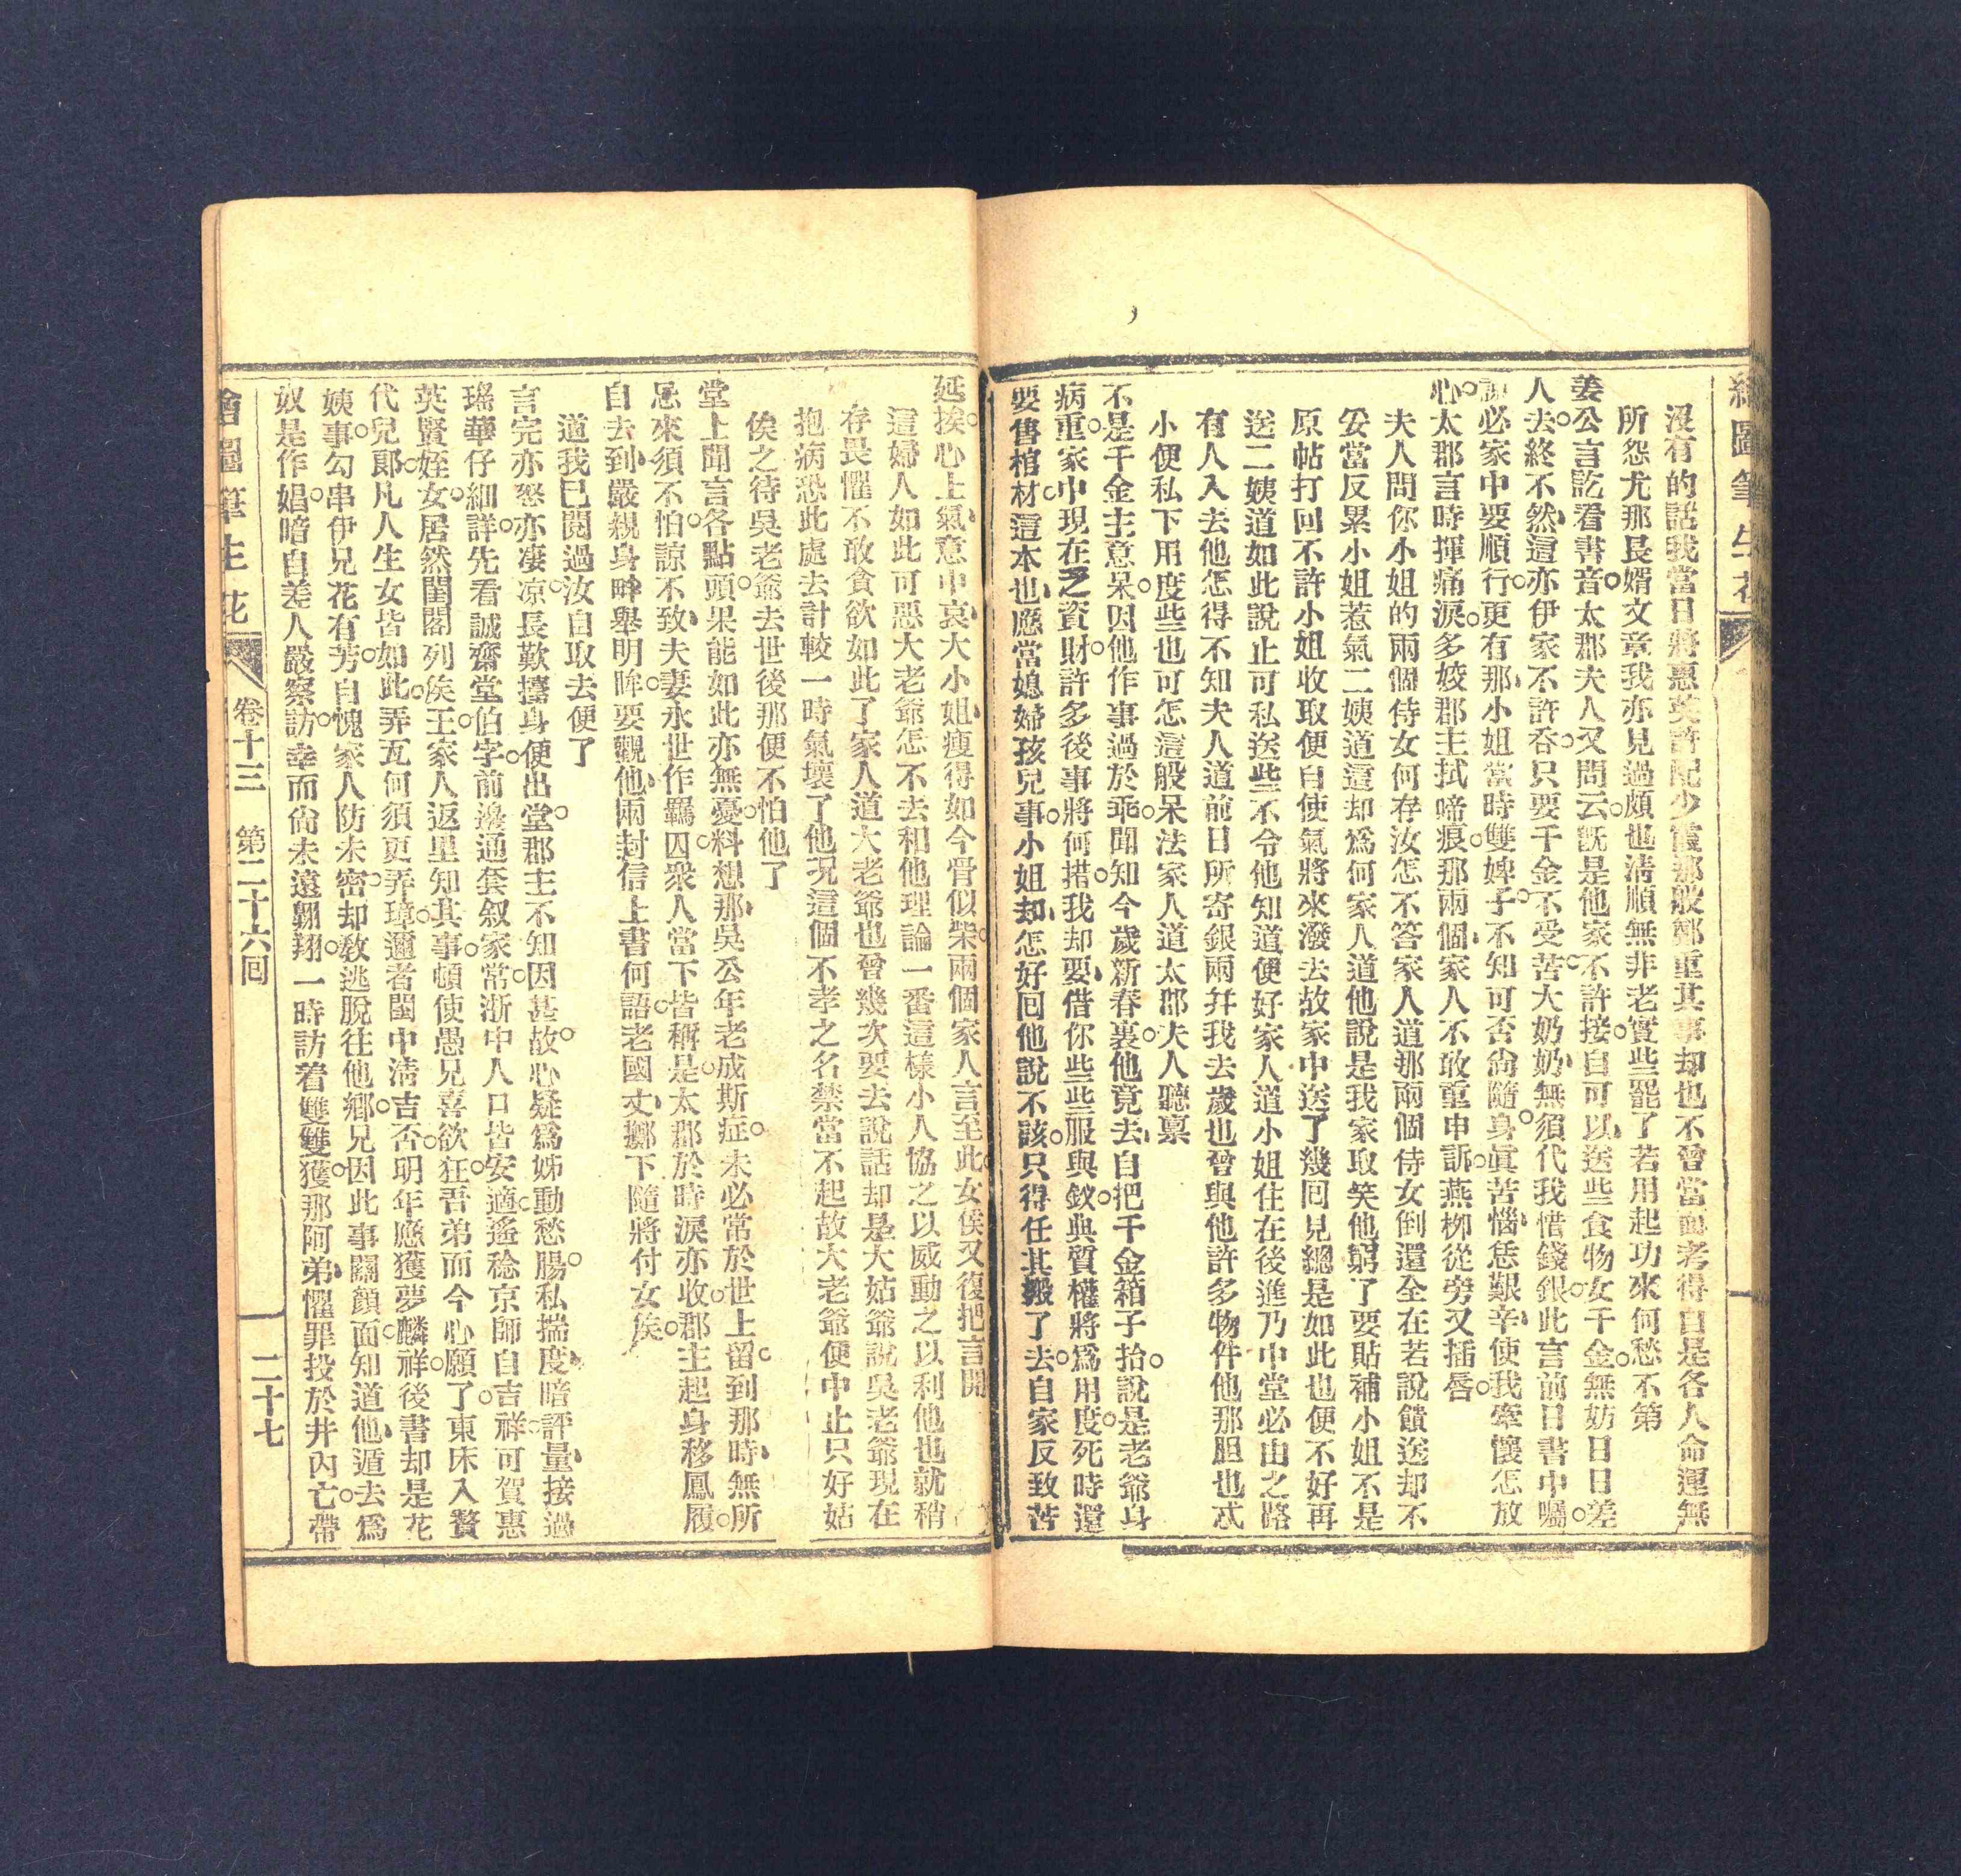 繪圖筆生花
沒有的話我當日將惠英許配少霞那般鄭重其事却也不曾當面考得自是各人命運無
所怨尤那良婿文章我亦見過頗也淸順無非老實些罷了若用起功來何愁不第
姜公言訖看書音。太郡夫人又問云。旣是他家不許接。自可以送些食物女千金。無妨日日差
人去。終不然這亦伊家不許呑。只要千金不受苦。大奶奶無須代我惜錢銀。此言前日書中囑。
說必家中要順行。更有那小姐當時雙婢子。不知可否尙隨身。眞苦惱恁艱辛使我牽懷怎放
心。太郡言時揮痛淚。多姣郡主拭啼痕。那兩個家人不敢重申訴。燕栁從旁又插唇。
夫人問你小姐的兩個侍女何存汝怎不答家人道那兩個侍女倒還全在若說饋送却不
妥當反累小姐惹氣二姨道這却爲何家人道他說是我家取笑他窮了要貼補小姐不是
原帖打回不許小姐收取便自使氣將來潑去故家中送了幾回見總是如此也便不好再
送二姨道如此說止可私送些不令他知道便好家人道小姐住在後進乃中堂必由之路
有人入去他怎得不知夫人道前日所寄銀兩幷我去歲也曾與他許多物件他那胆也忒
小便私下用度些也可怎這般呆法家人道太郡夫人聽禀
不是千金主意呆。因他作事過於乖。聞知今歲新春裏。他竟去自把千金箱子抬。說是老爺身
病重。家中現在乏資財。許多後事將何措。我却要借你些些服與釵。典質權將爲用度。死時還
要售棺材。這本也應當媳婦孩兒事。小姐却怎好回他說不該。只得任其搬了去。自家反致苦
延挨。心上氣意中哀大小姐瘦得如今骨似柴。兩個家人言至此。女侯又復把言開
這婦人如此可惡大老爺怎不去和他理論一番這樣小人協之以威動之以利他也就稍
存畏懼不敢貪欲如此了家人道大老爺也曾幾次要去說話却是大姑爺說吳老爺現在
抱病恐此處去計較一時氣壞了他况這個不孝之名禁當不起故大老爺便中止只好姑
俟之待吳老爺去世後那便不怕他了
堂上聞言各點頭。果能如此亦無憂。料想那吳公年老成斯症。未必常於世上留。到那時無所
忌來須不怕。諒不致夫妻永世作羈囚。衆人當下皆稱是。太郡於時淚亦收。郡主起身移鳳履。
自去到嚴親身畔舉明眸。要觀他兩封信上書何語。老國丈擲下隨將付女侯。
道我已閱過汝自取去便了
言完亦怒亦凄凉。長歎擡身便出堂。郡主不知因甚故。心疑爲姊動愁腸。私揣度暗評量接過
瑤華仔細詳。先看誠齋堂伯字。前邊通套叙家常。浙中人口皆安適。遙稔京師自吉祥。可賀惠
英賢姪女。居然閨閣列侯王。家人返里知其事。頓使愚兄喜欲狂。吾弟而今心願了。東床入贅
代兒郞。凡人生女皆如此。弄瓦何須更弄璋。邇者閨中淸吉否。明年應獲夢麟祥。後書却是花
姨事。勾串伊兄花有芳。自愧家人防未密。却敎逃脫往他鄕。兄因此事關顏面。知道他遁去爲
奴是作娼。暗自差人嚴察訪。幸而尙未遠翺翔。一時訪着雙雙獲。那阿弟懼罪投於井內亡。帶
繪圖筆生花
卷十三　第二十六回
二十七